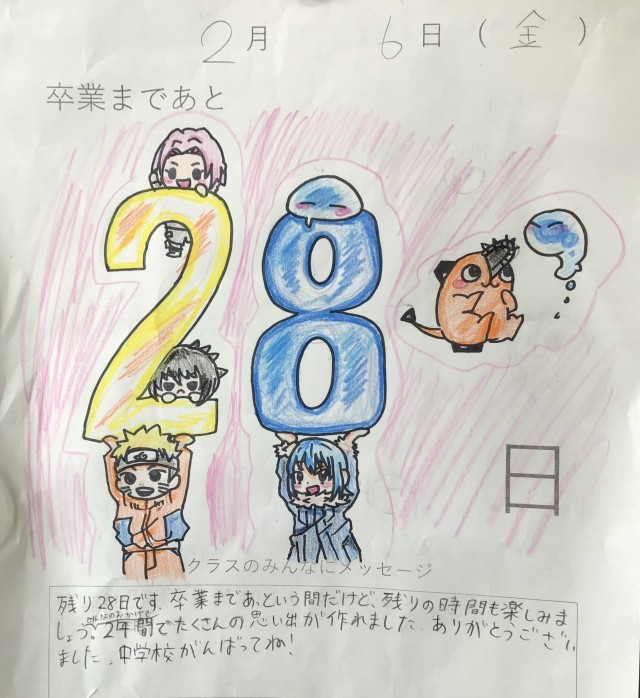 2月 6日(金)
卒業まであと
28
日
クラスのみんなにメッセージ
残り28日です。卒業まであっという間だけど、残りの時間も楽しみま
しょう。2年間でたくさんの思い出が作れました。ありがとうござい
みんなのおかげで
ました。中学校がんばってね!